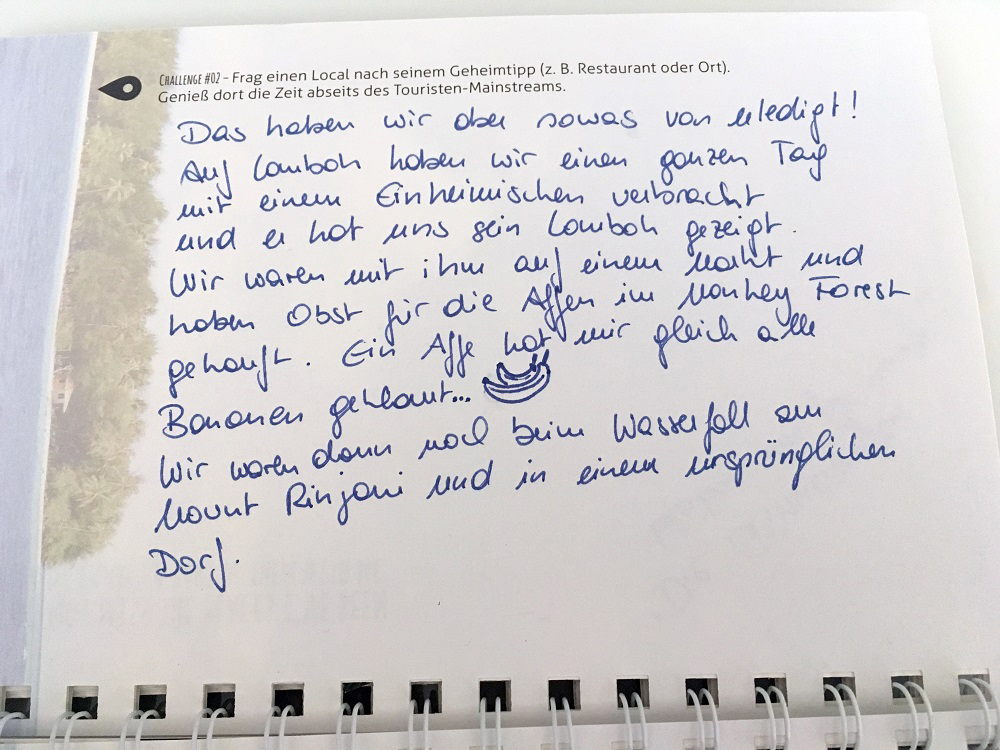 CHALLENGE #02 – Frag einen Local nach seinem Geheimtipp (z. B. Restaurant oder Ort).
Genieß dort die Zeit abseits des Touristen-Mainstreams.
Das haben wir aber sowas von erledigt!
Auf Lombok haben wir einen ganzen Tag
mit einem Einheimischen verbracht
und er hat uns sein Lombok gezeigt.
Wir waren mit ihm auf einem Markt und
haben Obst für die Affen im Monkey Forest
gekauft. Ein Affe hat mir gleich alle
Bananen geklaut...
Wir waren dann noch beim Wasserfall am
Mount Rinjani und in einem ursprünglichen
Dorf.